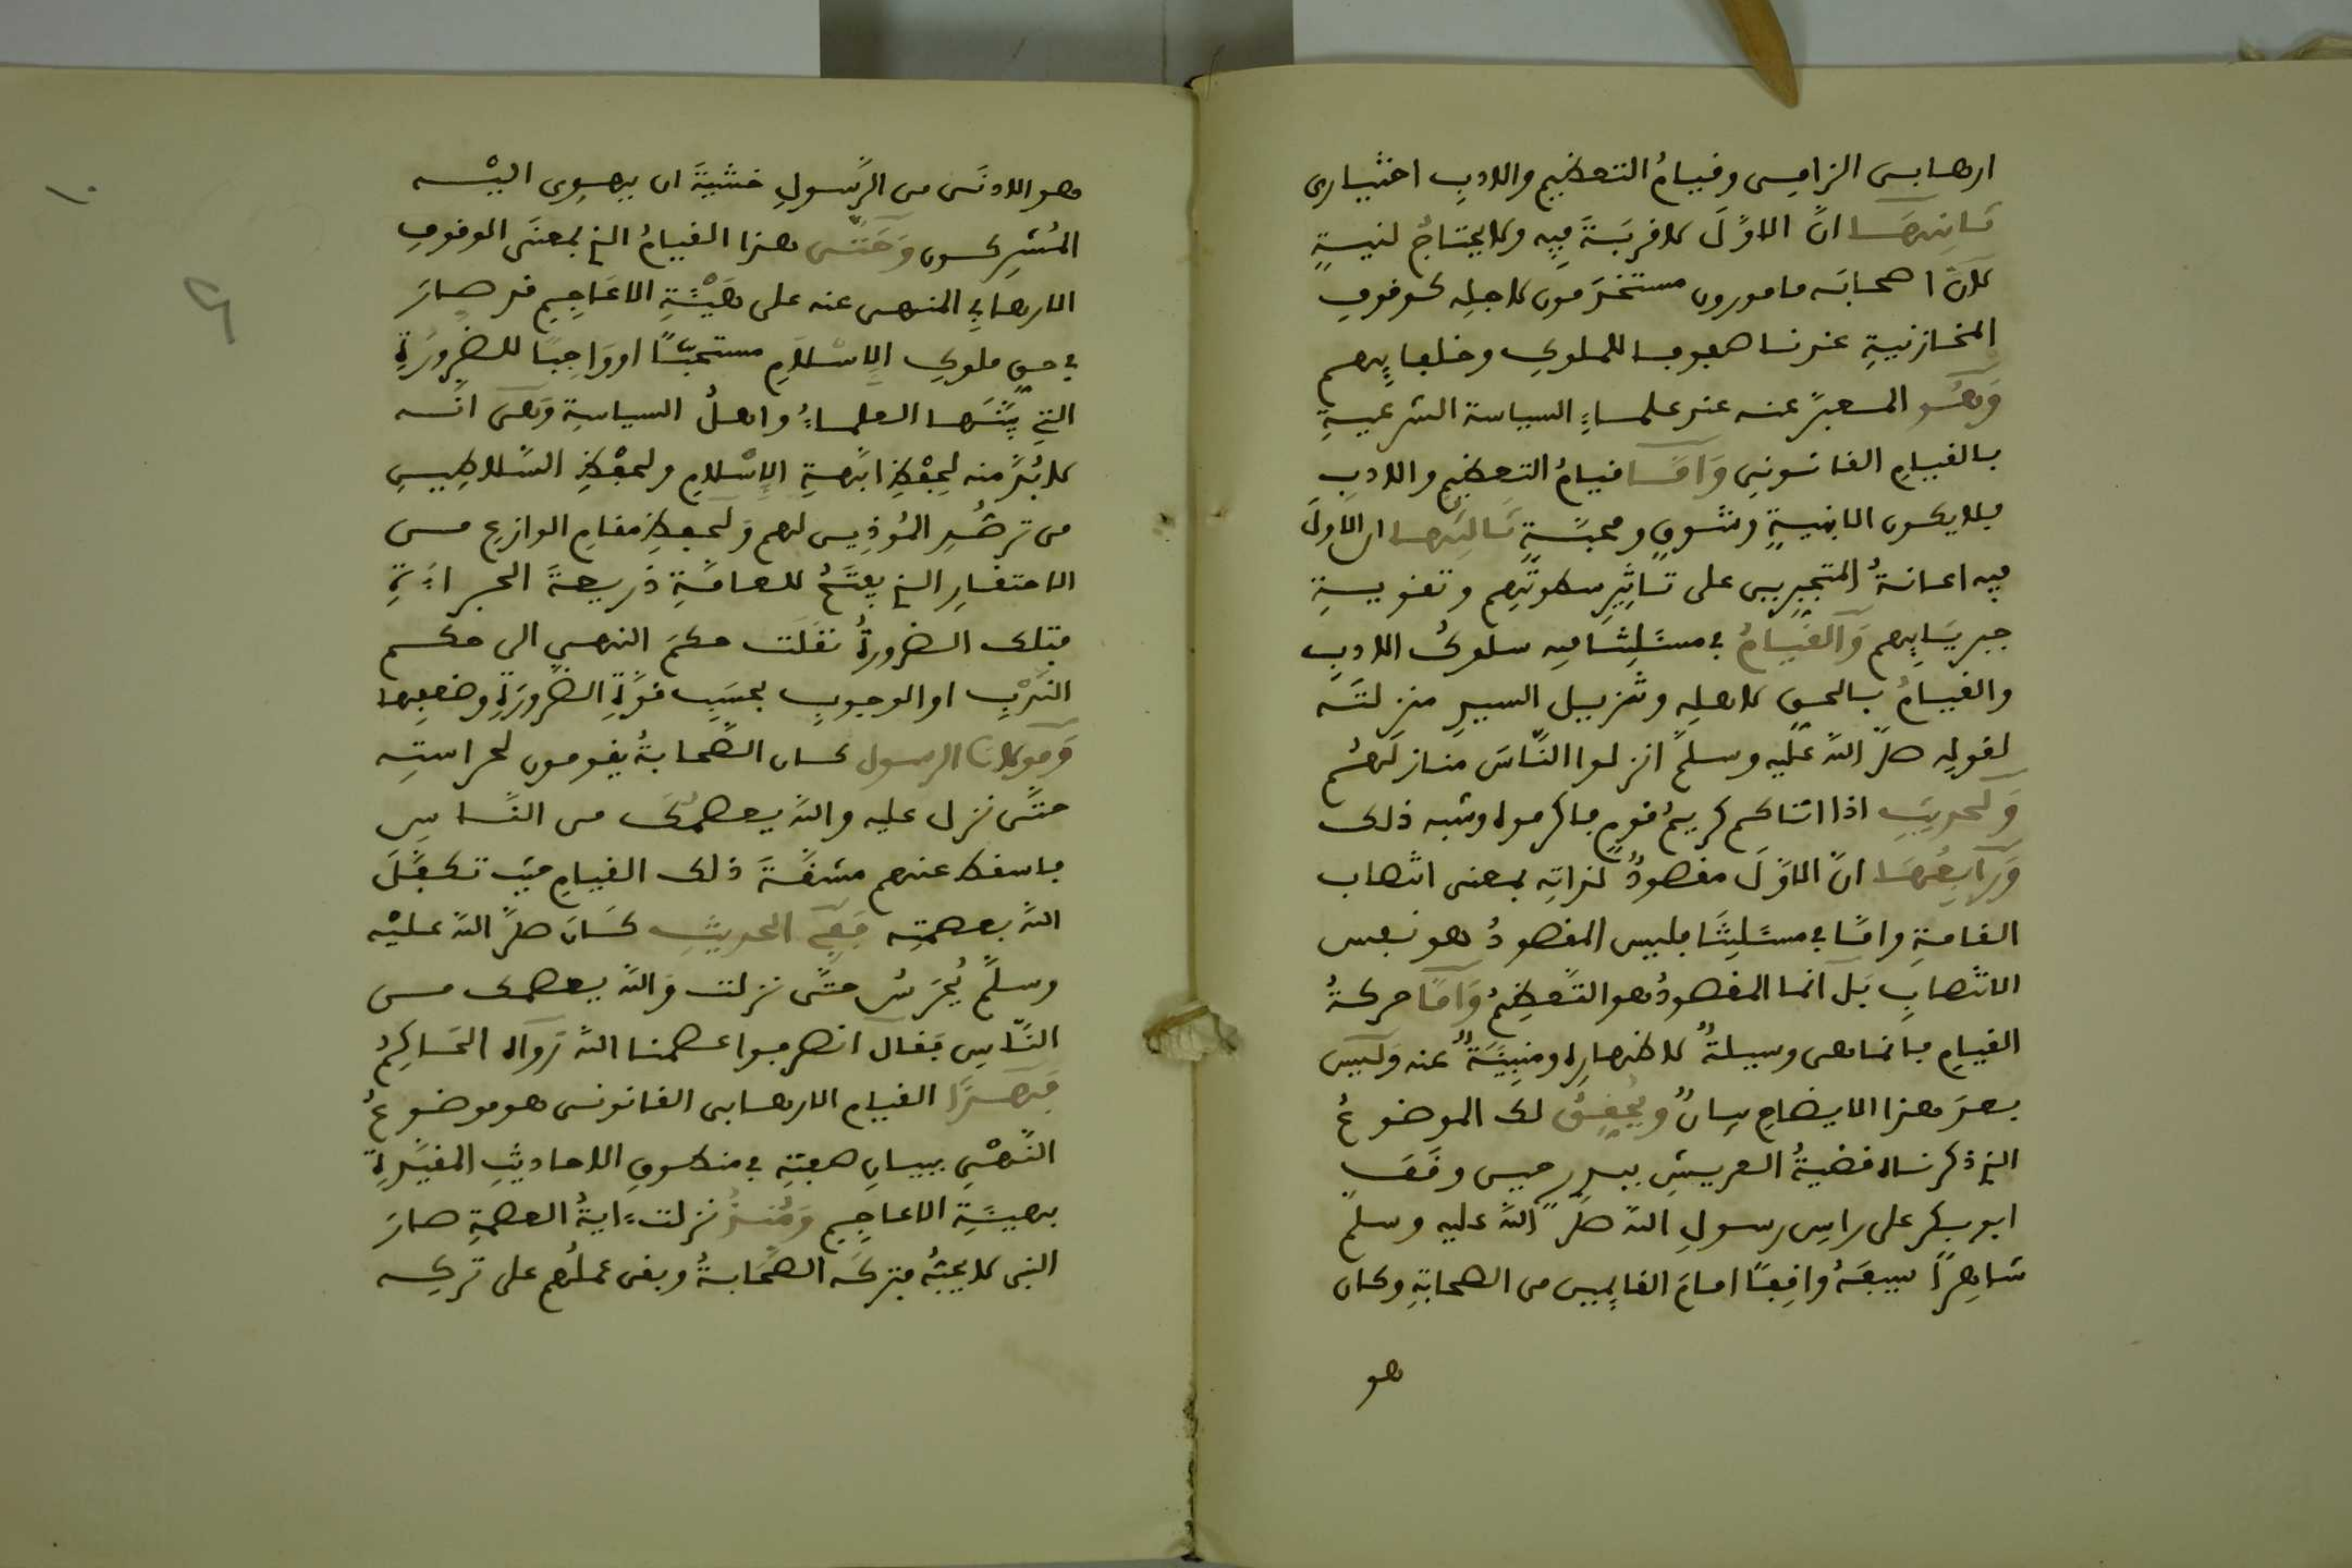 ارهابى الزامى وقيامُ التعظيمِ والادبِ اختيارى
ثانيها انَّ الاوَّلَ لا قربةَ فيه ولا يحتاجُ لنيةٍ
لانَّ اصحابَه مامورون مستخدَمون لاجلِه كوقوفِ
المخازنيةِ عندنا صفوفا للملوكِ وخلفايِهم
وَهُو المعبرُ عنه عند علماءِ السياسة الشرعيةِ
بالقيامِ القانونى وَامَّا قيامُ التعظيمِ والادبِ
فلا يكون الا بنيةٍ وشوقٍ ومحبَّةٍ ثالثها ان الاولَ
فيه اعانةُ المتجبرين على تاثيرِ سطوتِهم وتقويةِ
جبريَايِهم وَالقيامُ فى مسئلتنا فيه سلوكُ الادبِ
والقيامُ بالحقِ لاهلِه وتنزيل السيدِ منزلتَه
لقولِه صلَّ اللهُ عليه وسلمَّ انزلوا النَّاسَ منازلَهُم
وَلحديثِ اذا اتاكم كريمُ قومٍ فاكرموه وشبه ذلك
وَرَابِعُهَا انَّ الاوَّلَ مقصودٌ لذاتِه بمعنى انتصاب
القامةِ وامَّا فى مسئلتنَا فليس المقصودُ هو نفس
الانتصابِ بَل انما المقصودُ هو التَّعظيمُ وَامَّا حركةُ
القيامِ فانما هى وسيلةٌ لاظهارِه ومنبِيَةٌ عنه وَلَيس
بعدَ هذا الايضاحِ بيانٌ وَيُحقِقُ لك الموضوعُ
الذى ذكرناه قضيةُ العريشِ ببدرٍ حيس وقَفَ
ابو بكر على راسِ رسولِ اللهِ صلَّ اللهُ عليه وسلمَّ
شاهِراً سيفَهُ واقِفًا امامَ القايمين من الصحابةِ وكان
هو
وهو الادنَى من الرَّسولِ خشيةَ ان يهوِى اليْه
المُشرِكون وَحَتَّى هذا القيامُ الذى بمعنَى الوقوفِ
الارهابِي المنهى عنه على هَيْئَةِ الاعَاجِمِ قد صارَ
فى حقِ ملوكِ الاِسْلَامِ مستحبًّا او وَاجِبًا للضرورَةِ
التِى بيَّنَها العلماءُ واهلُ السياسةِ وَهىَ انَّه
لا بُدَّ منه لحِفْظِ ابَّهةِ الاِسْلامِ ولحِفْظِ السَّلاطِينِ
من ترصُّدِ المُوذِين لهم وَلحِفظِ مقامِ الوازعِ مـن
الاحتقارِ الذى يفتَحُ للعامَّةِ ذريعةَ الجراءَةِ
فتلك الضرورةُ نقَلَت حكمَ النهىِ الى حكم
النَّدْبِ او الوجوبِ بحسَبِ قوَّةِ الضرورَةِ وضعفِها
كان الصَّحابةُ يقومون لحراستِه
حتَّى نزل عليه واللهُ يعصمُكَ من النَّاسِ
فاسقط عنهم مشقَّةَ ذلك القيامِ حيث تكفَّلَ
اللهُ بعصمتِه فَفِى الحديثِ كَانَ صلَّ اللهُ عليْه
وسلمَّ يُحرَسُ حتَّى نزلت وَاللهُ يعصمك مـن
النَّاسِ فَقالَ انصرفوا عصمنا اللهُ رَوَاه الحَاكِمُ
فَهَذَا القيام الارهابى القانونى هو موضوعُ
النَّهْىِ ببيانِ صفتِه فى منطوقِ الاحاديثِ المقيِّدةِ
بهيئَةِ الاعاجِمِ وَمُنذُ نزلت ءايةُ العصمةِ صارَ
النبى لا يحبُّه فتركَه الصَّحَابةُ وبقى عملُهم على تركِه